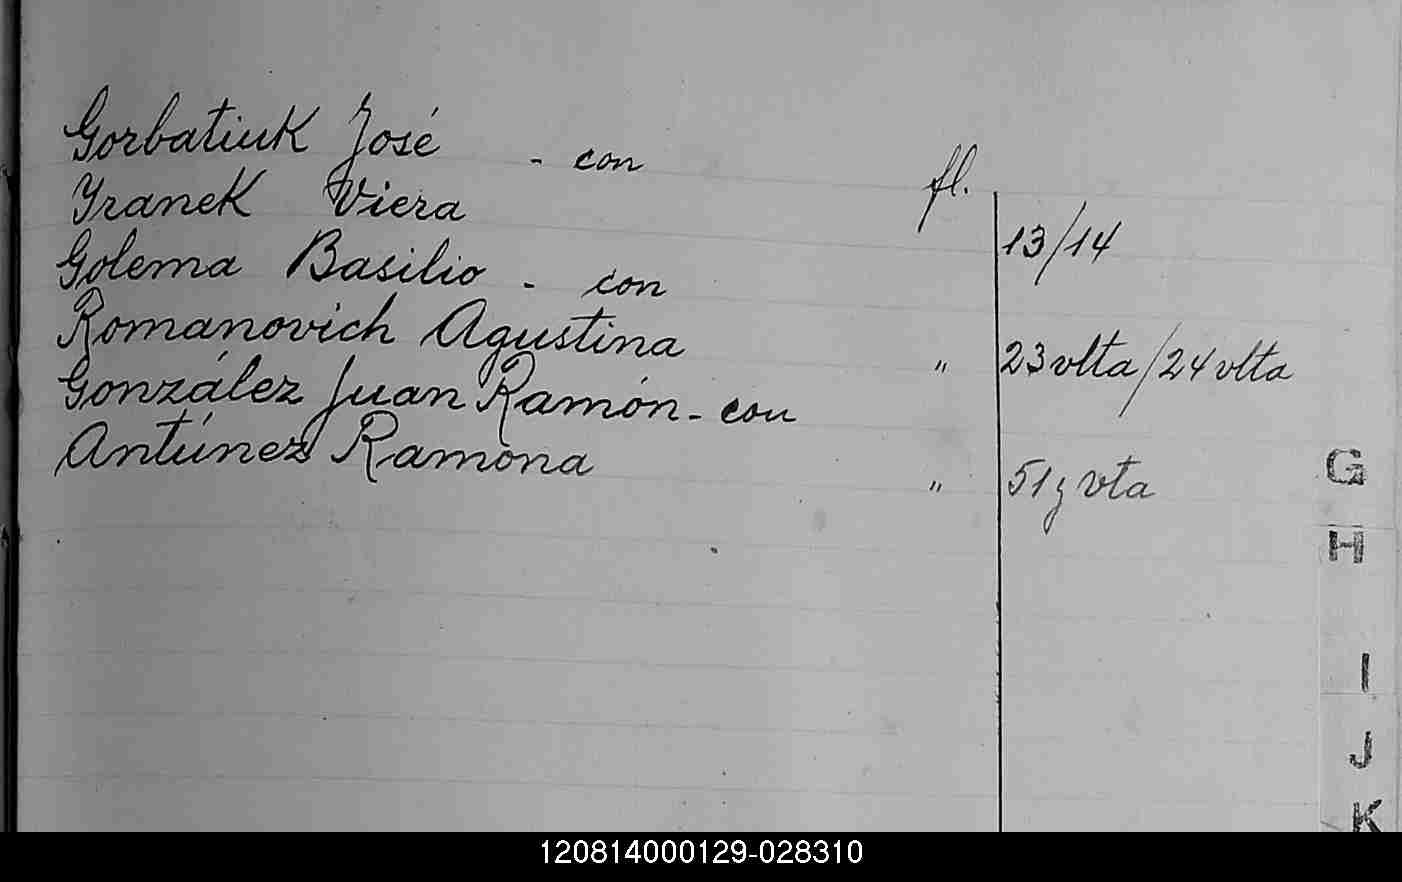 Gorbatiuk José - con fl.
Yranek Viera 13/14
Golema Basilio - con
Romanovich Agustina " 23 vlta/24 vlta
González Juan Ramón - con
Antúnez Ramona " 51 y vta
G
H
I
J
K
120814000129-028310